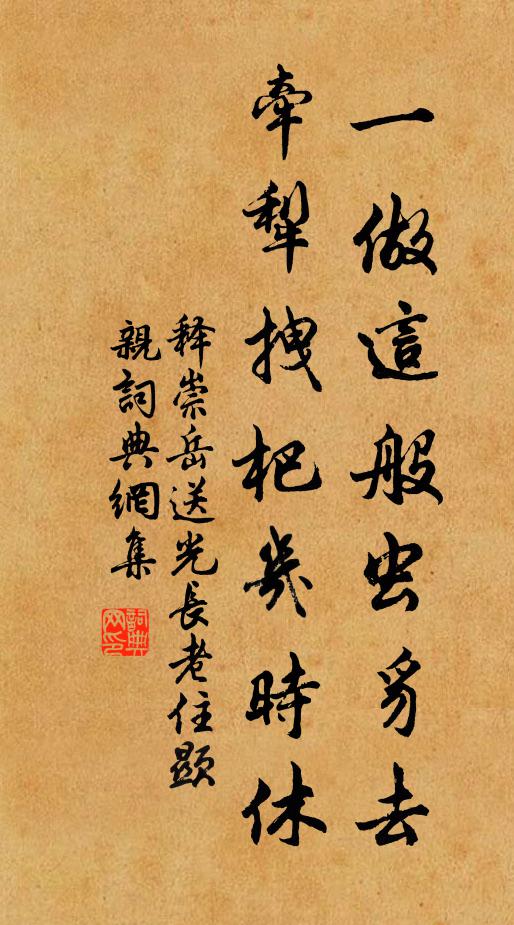 一做這般虫豸去
牽犁拽杷幾時休
释崇岳送光長老住顯
親詞典網集
詞典網印